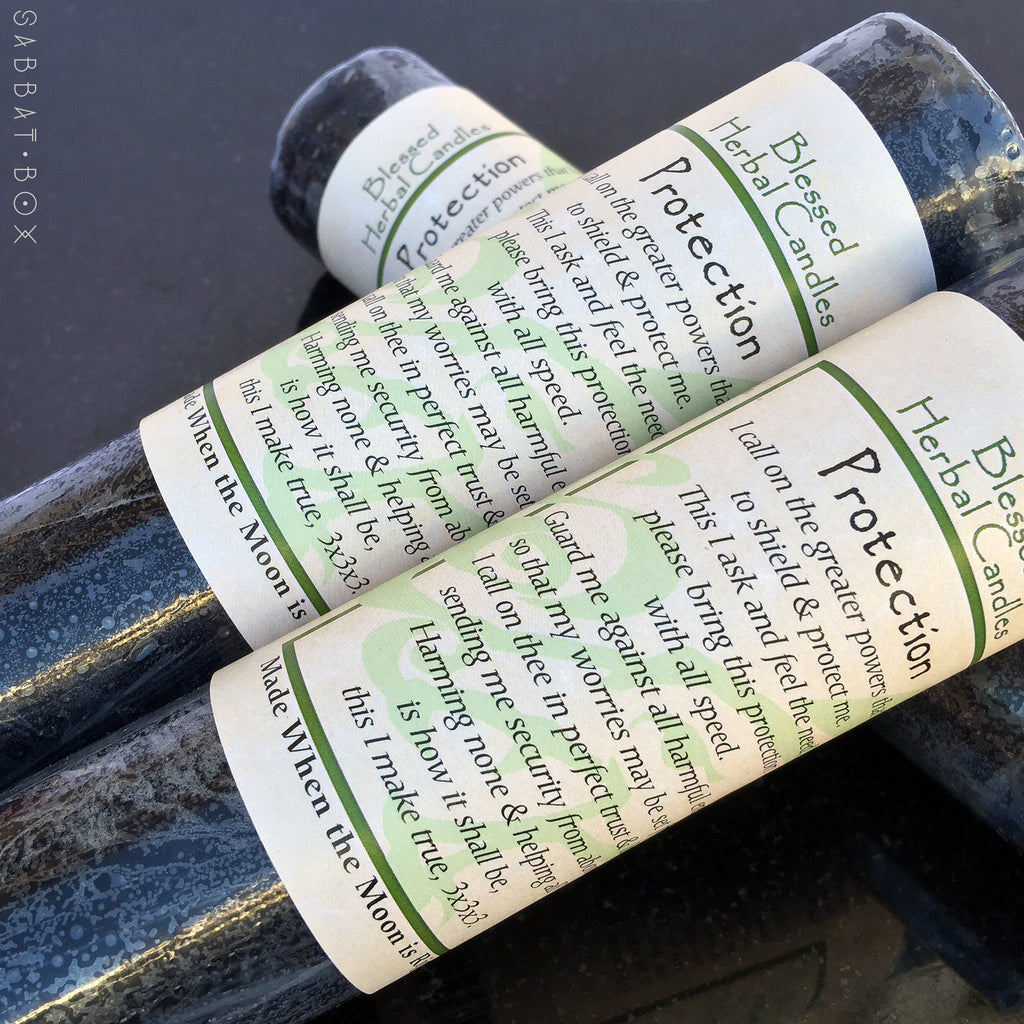 SABBAT·BOX
Blessed
Herbal Candles
Protection
greater powers that
Blessed
Herbal Candles
Protection
call on the greater powers tha
to shield & protect me.
This I ask and feel the need
please bring this protection
with all speed.
ard me against all harmful e
that my worries may be set
call on thee in perfect trust &
ending me security from ab
Harming none & helping a
is how it shall be,
this I make true, 3x3x3.
de When the Moon is
Blesse
Herbal Candles
Protection
I call on the greater powers tha
to shield & protect me.
This I ask and feel the need
please bring this protection
with all speed.
Guard me against all harmful e
so that my worries may be set
I call on thee in perfect trust &
sending me security from abo
Harming none & helping al
is how it shall be,
this I make true, 3x3x3.
Made When the Moon is R